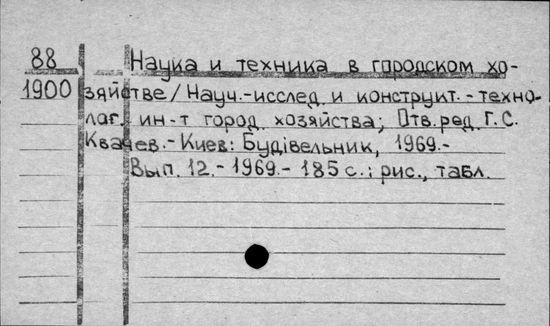 88 Наука и техника в городском хо-
1900 зяйстве / Науч.-исслед. и конструкт.-техно-
лог. ин-т город. хозяйства; Отв. ред. Г.С.
Квачев.- Киев: Будівельник, 1969.-
Вып. 12.- 1969.- 185 с.: рис., табл.